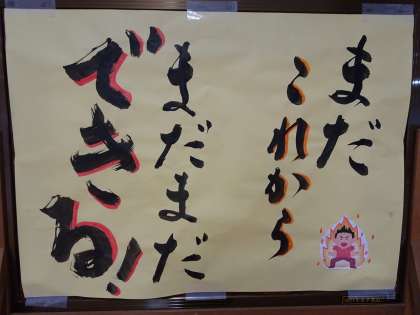 まだ
これから
まだまだ
できる!